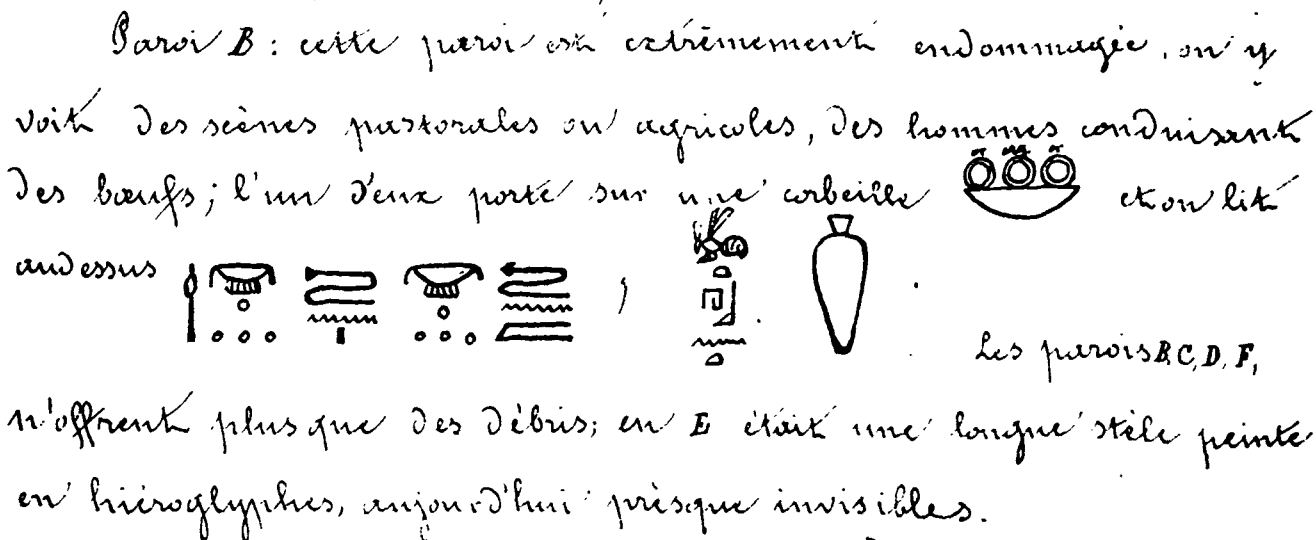 Paroi B : cette paroi est extrêmement endommagée, on y
voit des scènes pastorales ou agricoles, des hommes conduisant
des bœufs; l'un d'eux porte sur une corbeille et on lit
au dessus , .
Les parois B, C, D, F,
n'offrent plus que des débris; en E était une longue stèle peinte
en hiéroglyphes, aujourd'hui presque invisibles.